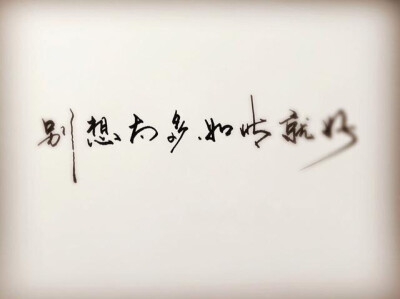 别想太多、如此就好